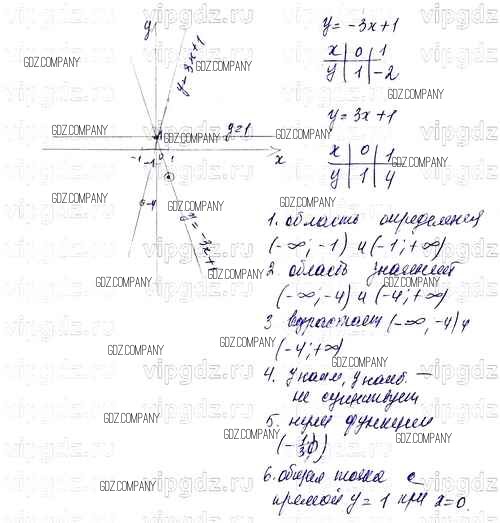 y
y = 3x+1
y=1
x
-1
-1
0
1
-4
y = -3x+1
y = -3x+1
x 0 1
y 1 -2
y = 3x+1
x 0 1
y 1 4
1. область определения
(-∞; -1) и (-1; +∞)
2. область значений
(-∞; -4) и (-4; +∞)
3 возрастает (-∞, -4) и
(-4; +∞)
4. y наим, y наиб. —
не существует.
5. нули функции
6. общая точка с
прямой y = 1 при x = 0.
GDZ.COMPANY
vipgdz.ru